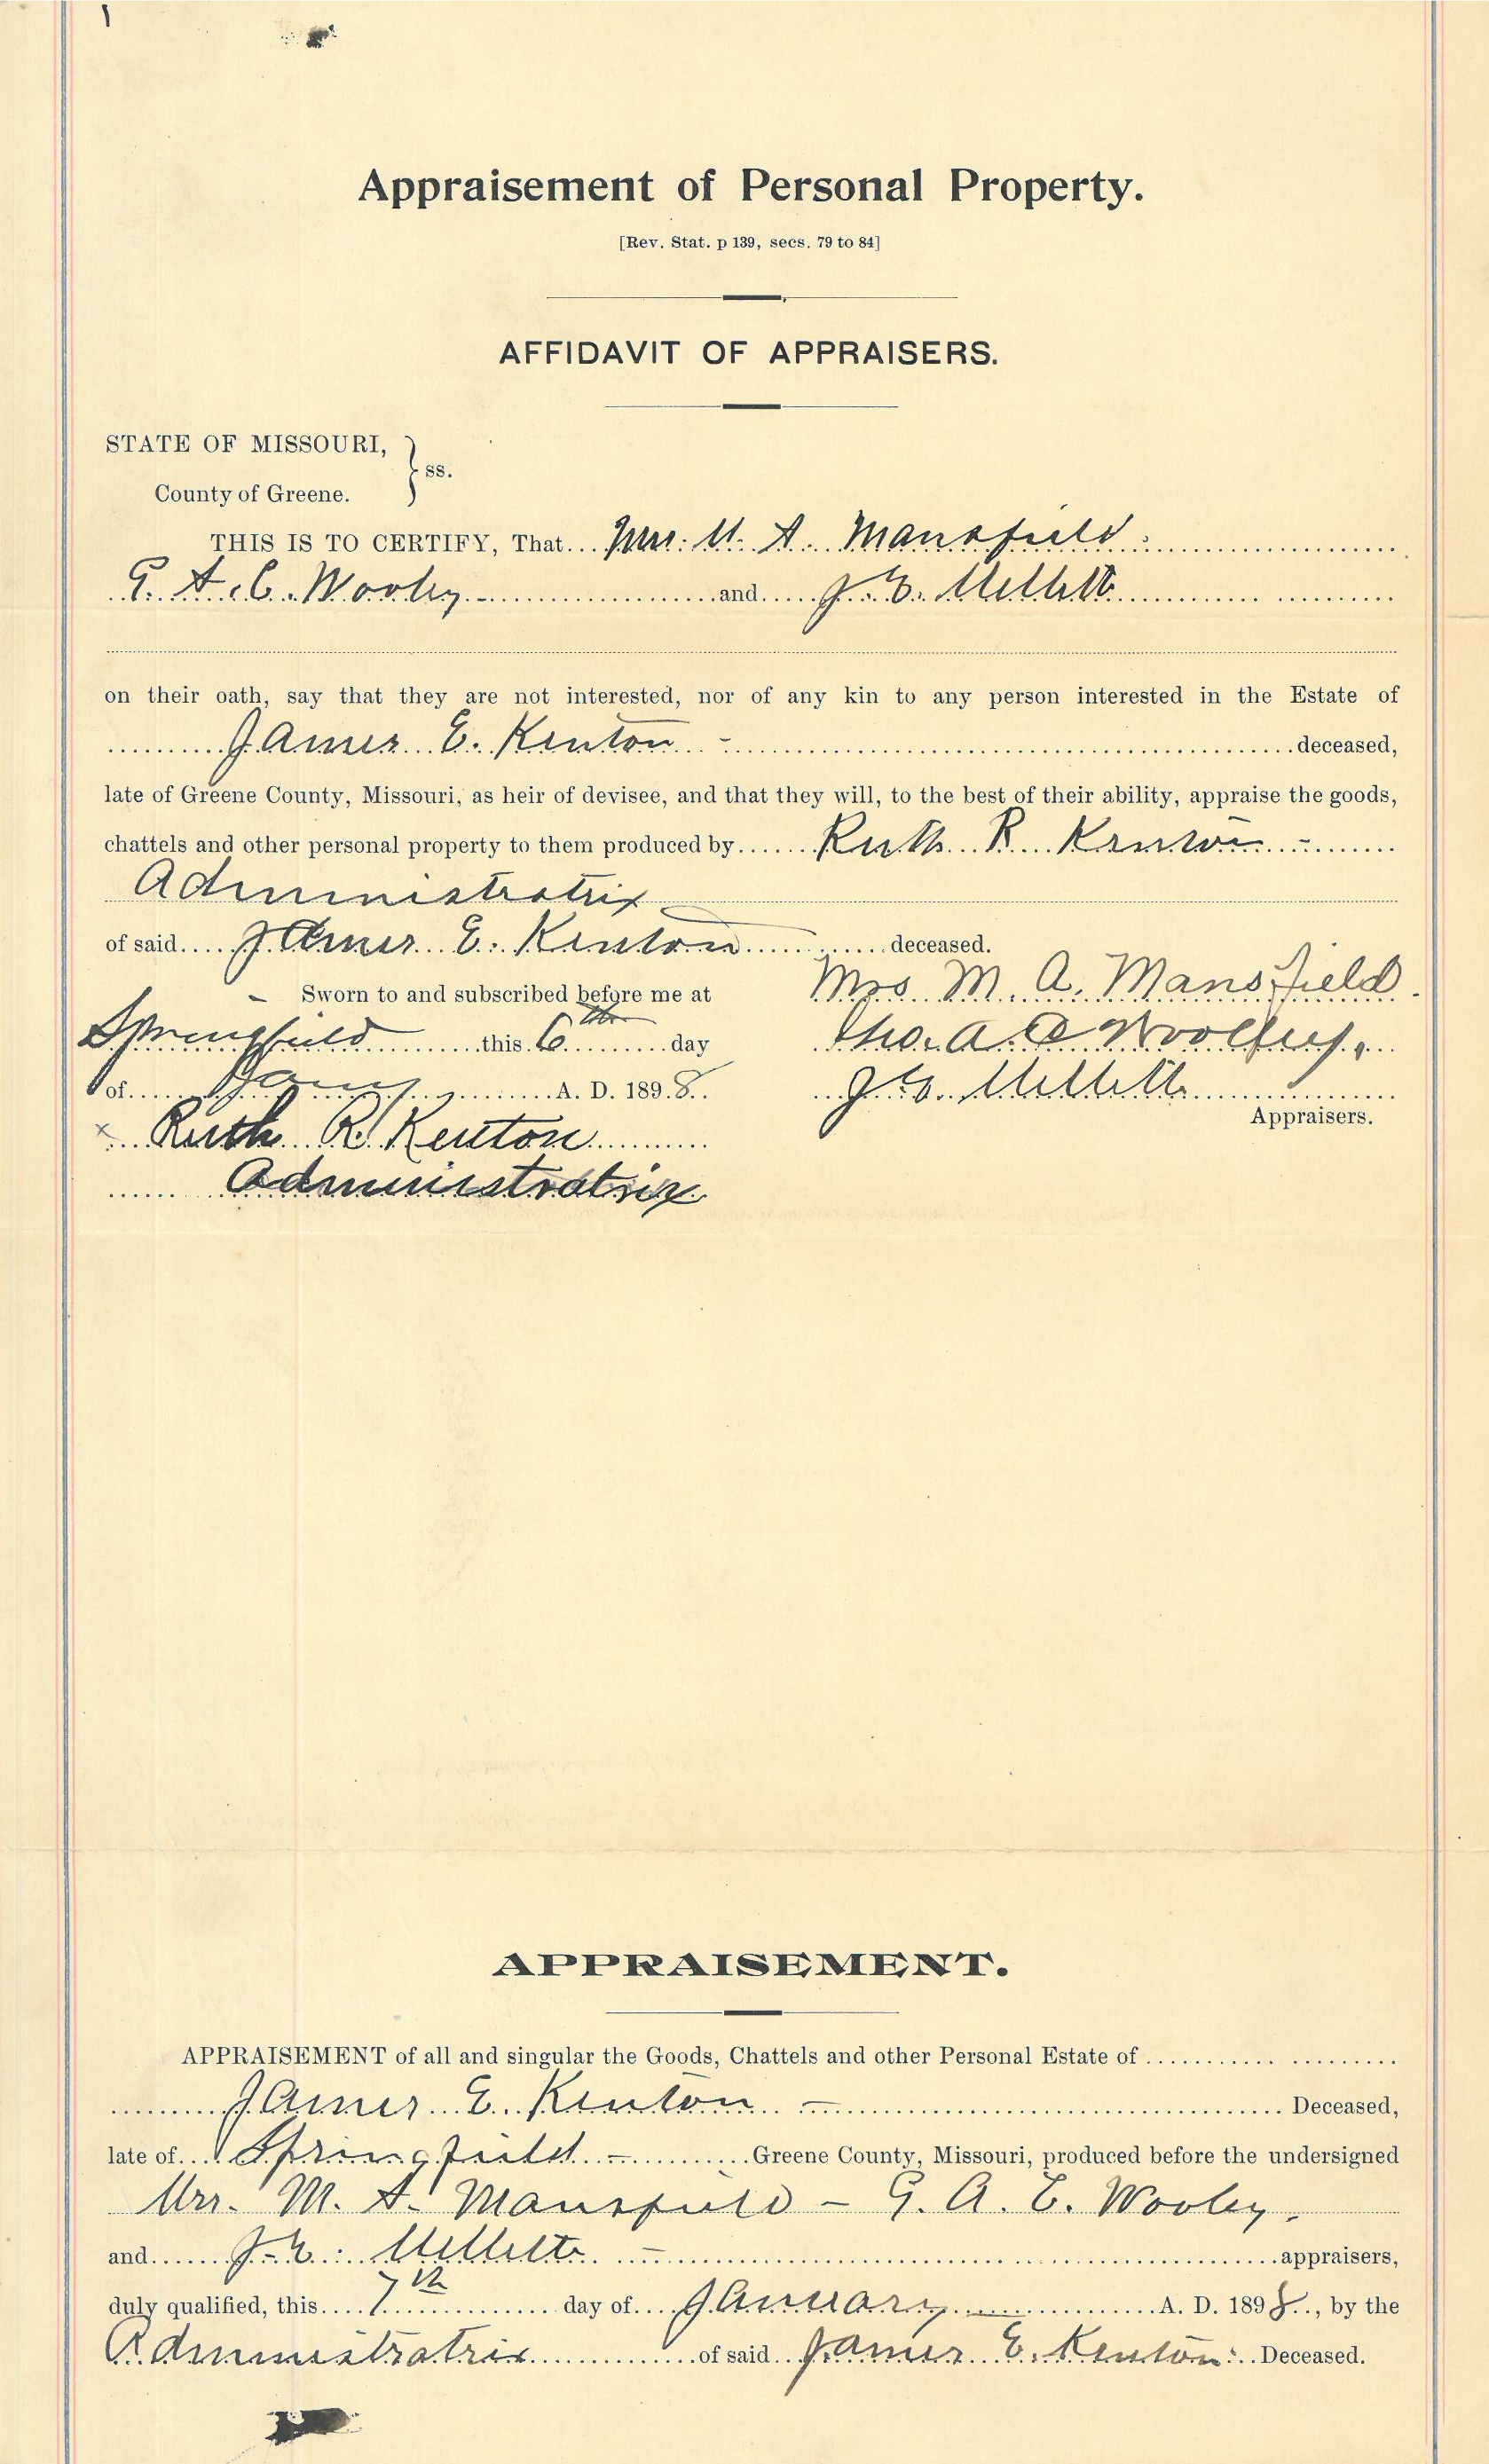 Appraisement of Personal Property.
[Rev. Stat. p 139, secs. 79 to 84]
AFFIDAVIT OF APPRAISERS.
STATE OF MISSOURI,
ss.
County of Greene.
THIS IS TO CERTIFY, That Mrs. M. A. Mansfield
G. A. C. Wooley and J. E. Mellette
on their oath, say that they are not interested, nor of any kin to any person interested in the Estate of
James E. Kenton deceased,
late of Greene County, Missouri, as heir of devisee, and that they will, to the best of their ability, appraise the goods,
chattels and other personal property to them produced by Ruth R. Kenton
Administratrix
of said James E. Kenton deceased.
Sworn to and subscribed before me at
Mrs M. A. Mansfield
Springfield this 6th day
A. C.
of Jany A. D. 1898
J. E. Mellette
Appraisers.
x Ruth R Kenton
Administratrix
APPRAISEMENT.
APPRAISEMENT of all and singular the Goods, Chattels and other Personal Estate of
James E. Kenton - Deceased,
late of Springfield - Greene County, Missouri, produced before the undersigned
Mrs. M. A. Mansfield - G. A. C. Wooley,
and J. E. Mellette appraisers,
duly qualified, this 7th day of January A. D. 1898, by the
Administratrix of said James E. Kenton Deceased.